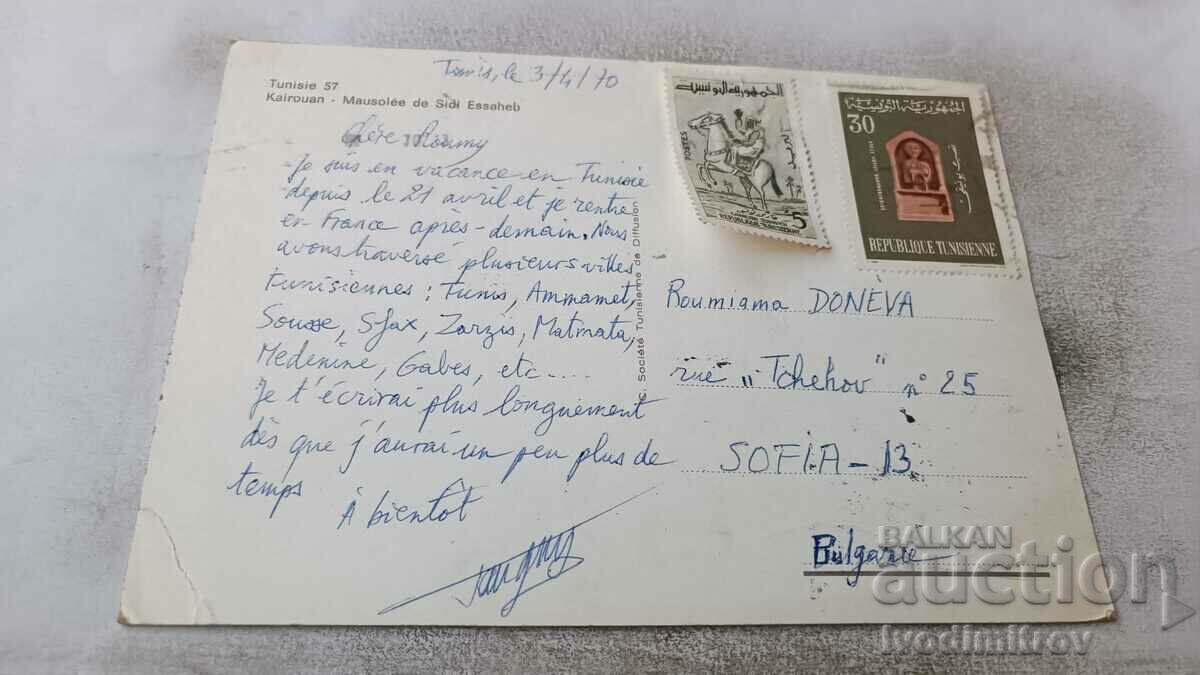 Tunisie 57
Kairouan - Mausolée de Sidi Essaheb
Tunis, le 3/4/70
Chère Roumy
Je suis en vacance en Tunisie
depuis le 21 avril et je rentre
en France après-demain. Nous
avons traversé plusieurs villes
Tunisiennes : Tunis, Ammamet,
Sousse, Sfax, Zarzis, Matmata,
Medenine, Gabes, etc....
Je t'écrirai plus longuement
dès que j'aurai un peu plus de
temps
À bientôt
C. Société Tunisienne de Diffusion
الجمهورية التونسية
POSTES
البريد
5
REPUBLIQUE TUNISIENNE
الجمهورية التونسية
30
REPUBLIQUE TUNISIENNE
Roumiama DONEVA
rue "Tchehov" n° 25
SOFIA - 13
Bulgarie
BALKAN
auction
ivodimitrov